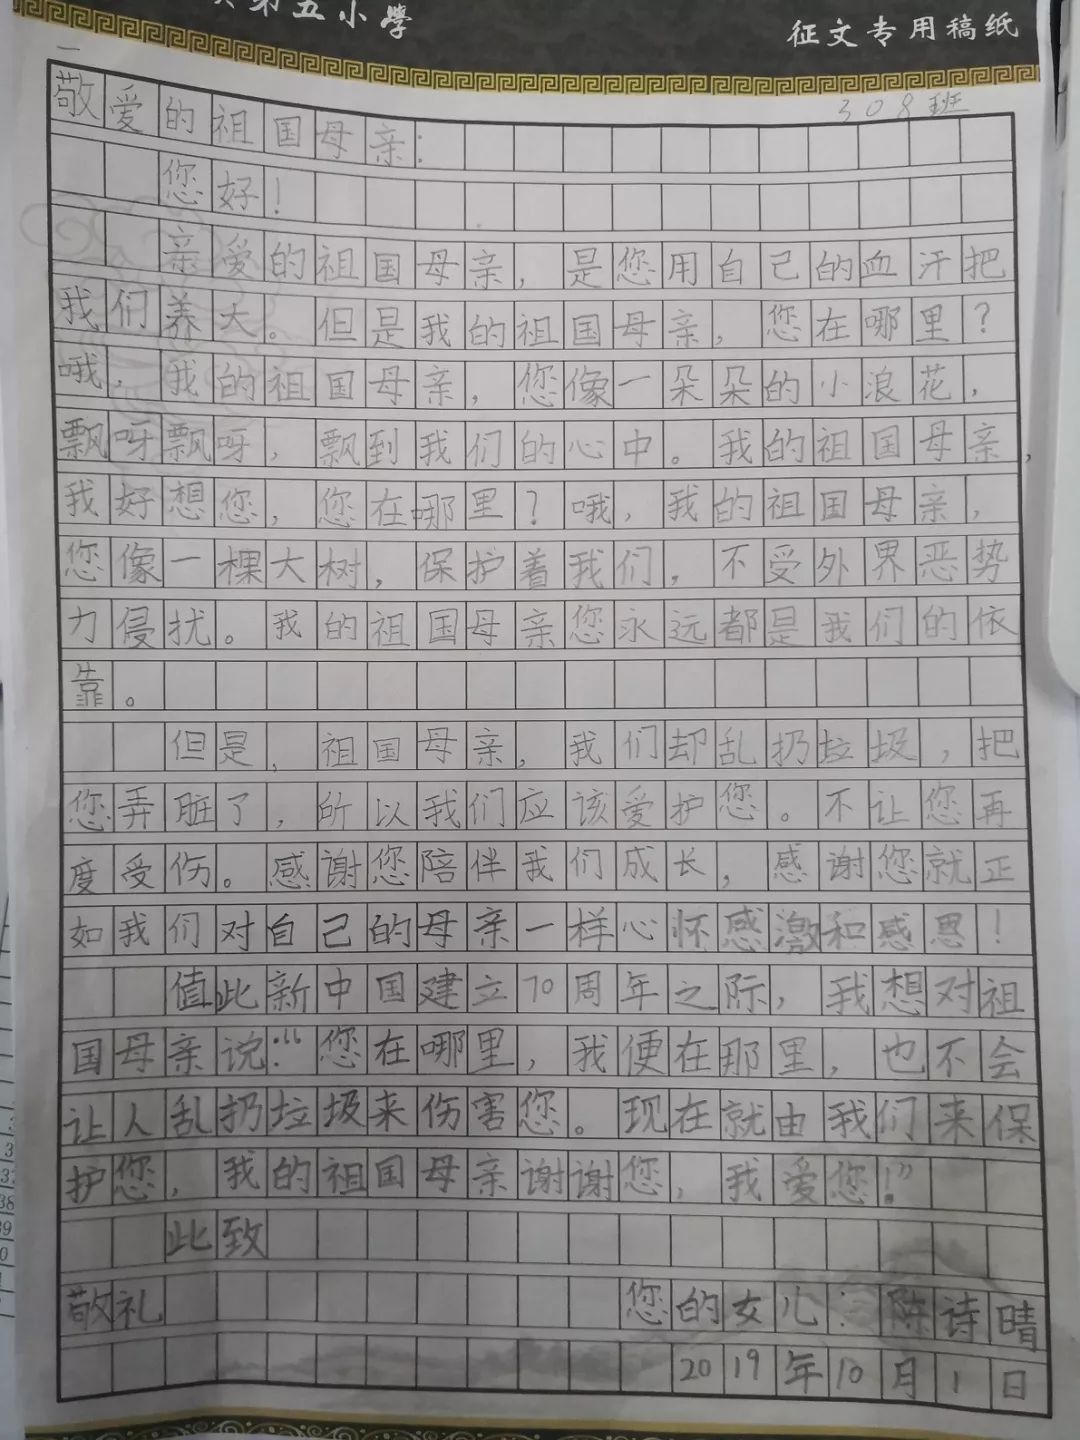 第五小學
征文专用稿纸
308班
敬爱的祖国母亲:
您好!
亲爱的祖国母亲,是您用自己的血汗把
我们养大。但是我的祖国母亲,您在哪里?
哦,我的祖国母亲,您像一朵朵的小浪花,
飘呀飘呀,飘到我们的心中。我的祖国母亲,
我好想您,您在哪里?哦,我的祖国母亲,
您像一棵大树,保护着我们,不受外界恶势
力侵扰。我的祖国母亲您永远都是我们的依
靠。
但是,祖国母亲,我们却乱扔垃圾,把
您弄脏了,所以我们应该爱护您。不让您再
度受伤。感谢您陪伴我们成长,感谢您就正
如我们对自己的母亲一样心怀感激和感恩!
值此新中国建立70周年之际,我想对祖
国母亲说:“您在哪里,我便在那里,也不会
让人乱扔垃圾来伤害您。现在就由我们来保
护您,我的祖国母亲谢谢您,我爱您!”
此致
敬礼 您的女儿:陈诗晴
2019年10月1日